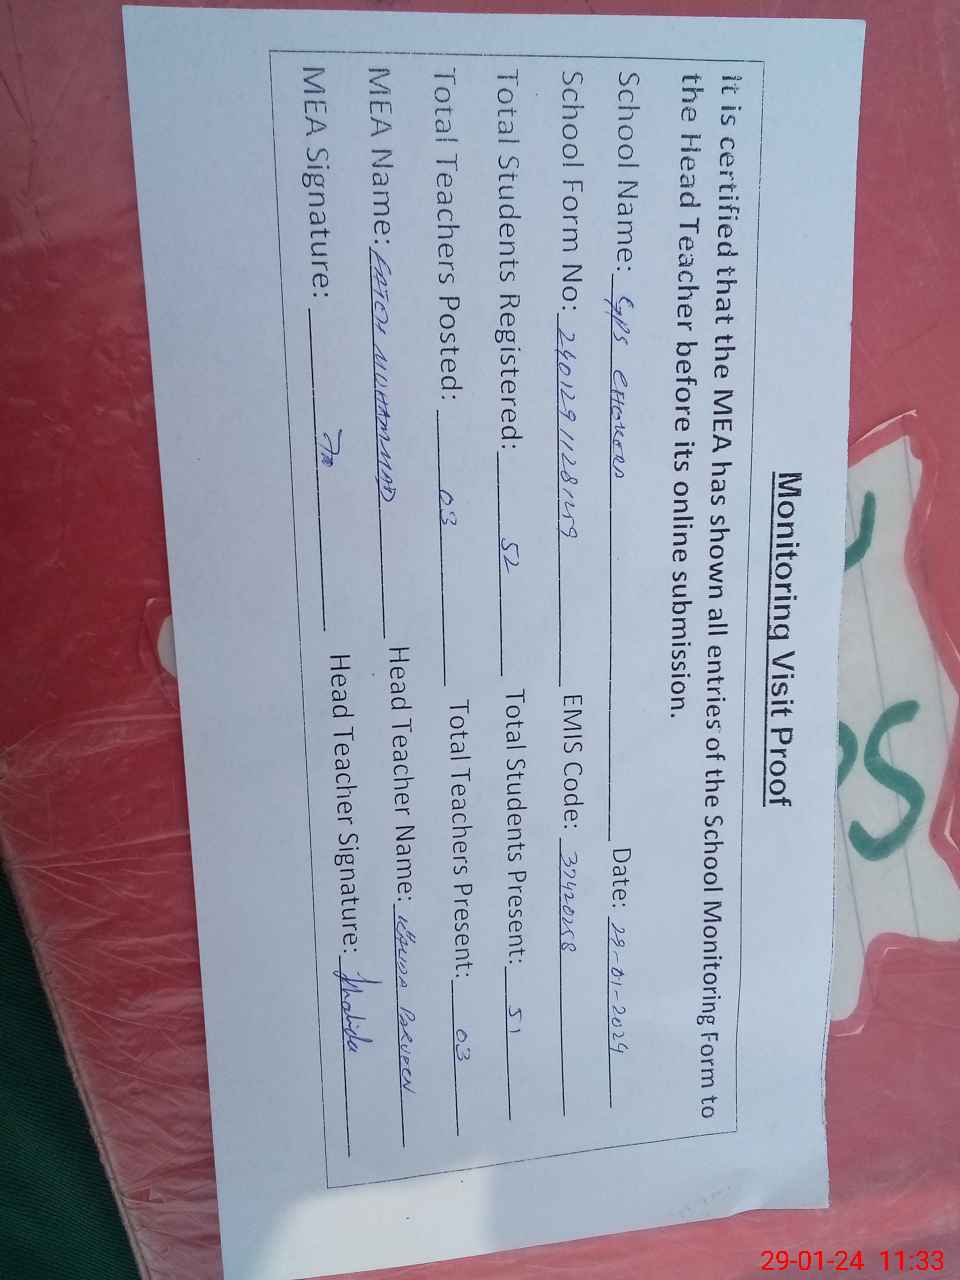 Monitoring Visit Proof
It is certified that the MEA has shown all entries of the School Monitoring Form to
the Head Teacher before its online submission.
School Name: GPS Date: 29-01-2024
School Form No: EMIS Code:
Total Students Registered: 52 Total Students Present: 51
Total Teachers Posted: 03 Total Teachers Present: 03
MEA Name: FATEH MUHAMMAD Head Teacher Name:
MEA Signature: Head Teacher Signature: Khalida
29-01-24 11:33